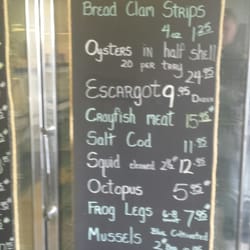 Bread Clam Strips
4oz 1.25
Oysters in half shell
20 per tray
24.95
Escargot 9.95 Dozen
Crayfish meat 15.95#
Salt Cod 11.95
Squid cleaned 2#12.95
Octopus 5.95
Frog Legs 6-8 7.95#
Mussels Blue Cultivated
2#